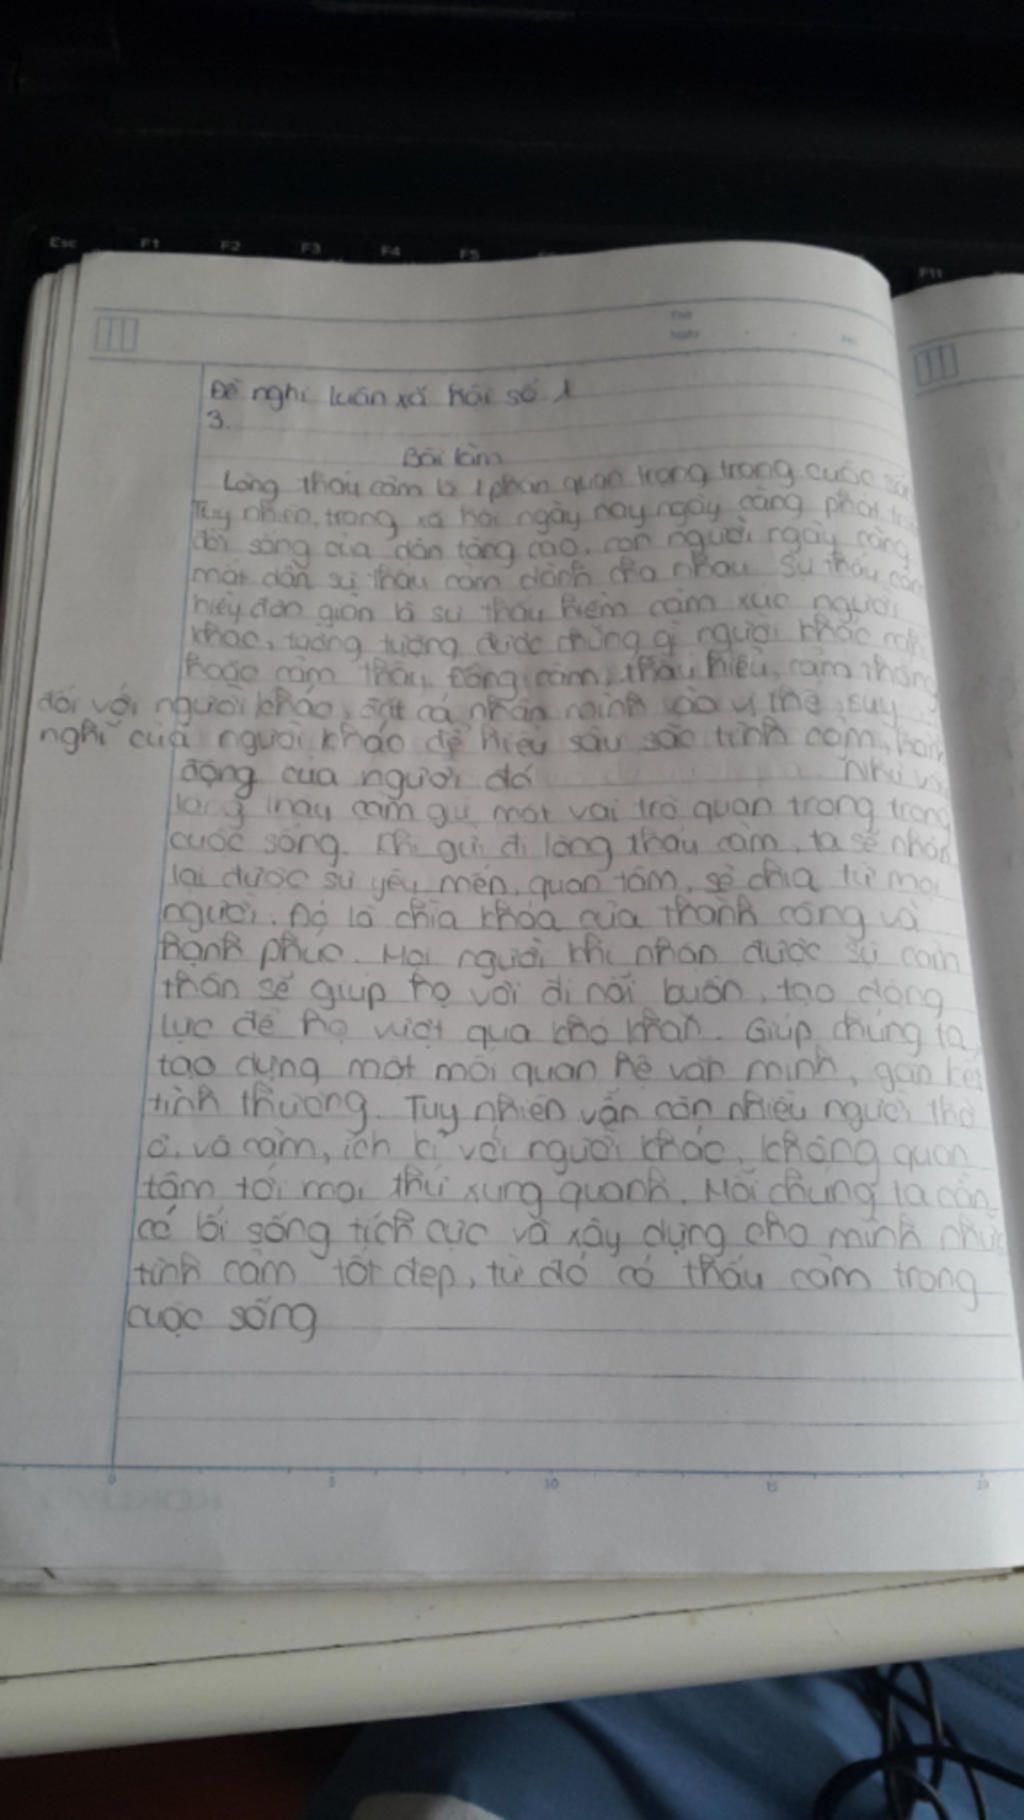 Esc F1 F2 F3 F4 F5 F11
Thứ
Ngày
Đề nghị luận xã hội số 1
3.
Bài làm
Lòng thấu cảm là 1 phần quan trọng trong cuộc
Tuy nhiên, trong xã hội ngày nay ngày càng phát
đời sống của dân tăng cao, con người ngày càng
mất dần sự thấu cảm dành cho nhau. Sự thấu cảm
hiểu đơn giản là sự thấu hiểm cảm xúc người
khác, tưởng tượng được những gì người khác
hoặc cảm thấy, đồng cảm, thấu hiểu, cảm thông
đối với người khác, đặt cá nhân mình vào vị thế, suy
nghĩ của người khác để hiểu sâu sắc tình cảm, hành
động của người đó Như
cảm giữ một vai trò quan trọng trong
cuộc sống. Khi gửi đi lòng thấu cảm, ta sẽ nhận
lại được sự yêu mến, quan tâm, sẻ chia từ mọi
người. Đó là chìa khóa của thành công và
hạnh phúc. Mọi người khi nhận được sự cảm
thôn sẽ giúp họ vơi đi nỗi buồn, tạo động
lực để họ vượt qua khó khăn. Giúp chúng ta
tạo dựng một mối quan hệ văn minh, gắn kết
tình thương. Tuy nhiên vẫn còn nhiều người thờ
ơ, vô cảm, ích kỉ với người khác, không quan
tâm tới mọi thứ xung quanh. Mỗi chúng ta cần
có lối sống tích cực và xây dựng cho mình những
tình cảm tốt đẹp, từ đó có thấu cảm trong
cuộc sống
0 5 10 15 20